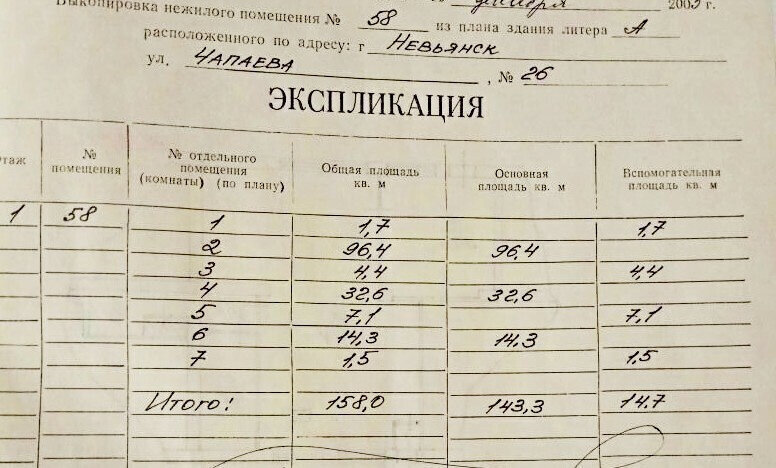 Выкопировка нежилого помещения № 58 из плана здания литера А
расположенного по адресу: г Невьянск
ул. Чапаева, № 26
ЭКСПЛИКАЦИЯ
№ помещения № отдельного помещения (комнаты) (по плану) Общая площадь кв. м Основная площадь кв. м Вспомогательная площадь кв. м
1 58 1 1,7 1,7
2 96,4 96,4
3 4,4 4,4
4 32,6 32,6
5 7,1 7,1
6 14,3 14,3
7 1,5 1,5
Итого: 158,0 143,3 14.7